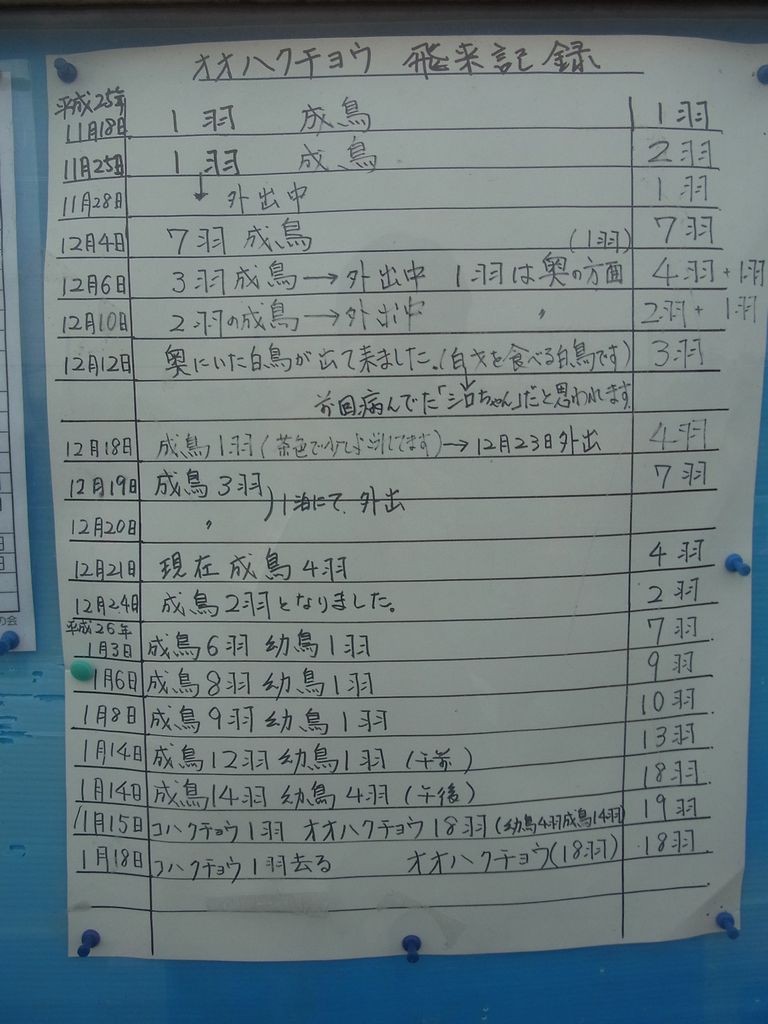 オオハクチョウ 飛来記録
平成25年
11月18日 1羽 成鳥 1羽
11月25日 1羽 成鳥 2羽
11月28日 ↓ 外出中 1羽
12月4日 7羽 成鳥 (1羽) 7羽
12月6日 3羽成鳥→外出中 1羽は奥の方面 4羽+1羽
12月10日 2羽の成鳥→外出中 〃 2羽+1羽
12月12日 奥にいた白鳥が出て来ました。(白才を食べる白鳥です) 3羽
前回病んでた「シロちゃん」だと思われます
12月18日 成鳥1羽(茶色で少し)→12月23日外出 4羽
12月19日 成鳥3羽 7羽
)1泊にて外出
12月20日 〃
12月21日 現在成鳥4羽 4羽
12月24日 成鳥2羽となりました。 2羽
平成26年
1月3日 成鳥6羽 幼鳥1羽 7羽
1月6日 成鳥8羽 幼鳥1羽 9羽
1月8日 成鳥9羽 幼鳥1羽 10羽
1月14日 成鳥12羽 幼鳥1羽 (午前) 13羽
1月14日 成鳥14羽 幼鳥4羽 (午後) 18羽
1月15日 コハクチョウ1羽 オオハクチョウ18羽(幼鳥4羽成鳥14羽) 19羽
1月18日 コハクチョウ1羽去る オオハクチョウ(18羽) 18羽
の会